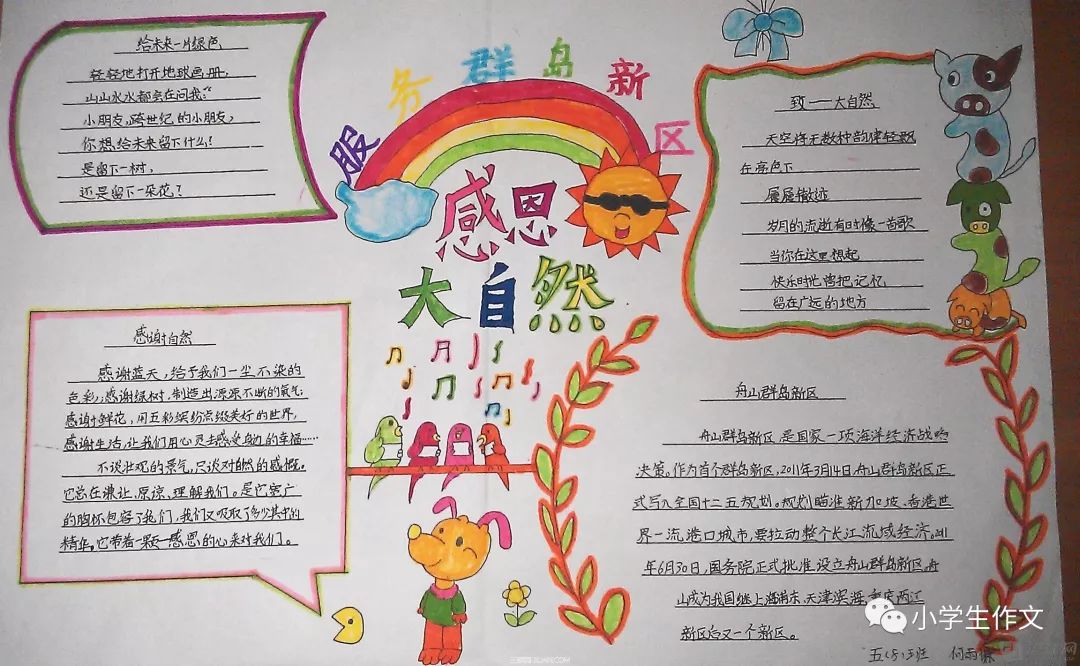 服务群岛新区
感恩
大自然
给未来一片绿色
轻轻地打开地球画册，
山山水水都会在问我：“
小朋友，跨世纪的小朋友，
你想给未来留下什么！
是留下一树，
还是留下一朵花？
致——大自然
天空将无数种韵律轻歌
在亮色下
履履辙迹
岁月的流逝有时像一首歌
当你在这里想起
快乐时光曾把记忆
留在广远的地方
感谢自然
感谢蓝天，给予我们一尘不染的
色彩；感谢绿树，制造出源源不断的氧气；
感谢鲜花，用五彩缤纷点缀美好的世界，
感谢生活，让我们用心灵去感受身边的幸福……
不谈壮观的景气，只谈对自然的感慨。
它总在谦让、原谅、理解我们。是它宽广
的胸怀包容了我们，我们又吸取了多少其中的
精华。它带着一颗感恩的心来对我们。
舟山群岛新区
舟山群岛新区，是国家一项海洋经济战略
决策。作为首个群岛新区，2011年3月14日，舟山群岛新区正
式写入全国十二五规划。规划瞄准新加坡、香港世
界一流港口城市，要拉动整个长江流域经济。2011
年6月30日，国务院正式批准设立舟山群岛新区。舟
山成为我国继上海浦东、天津滨海、重庆两江
新区后又一个新区。
小学生作文
五(8)班 何雨